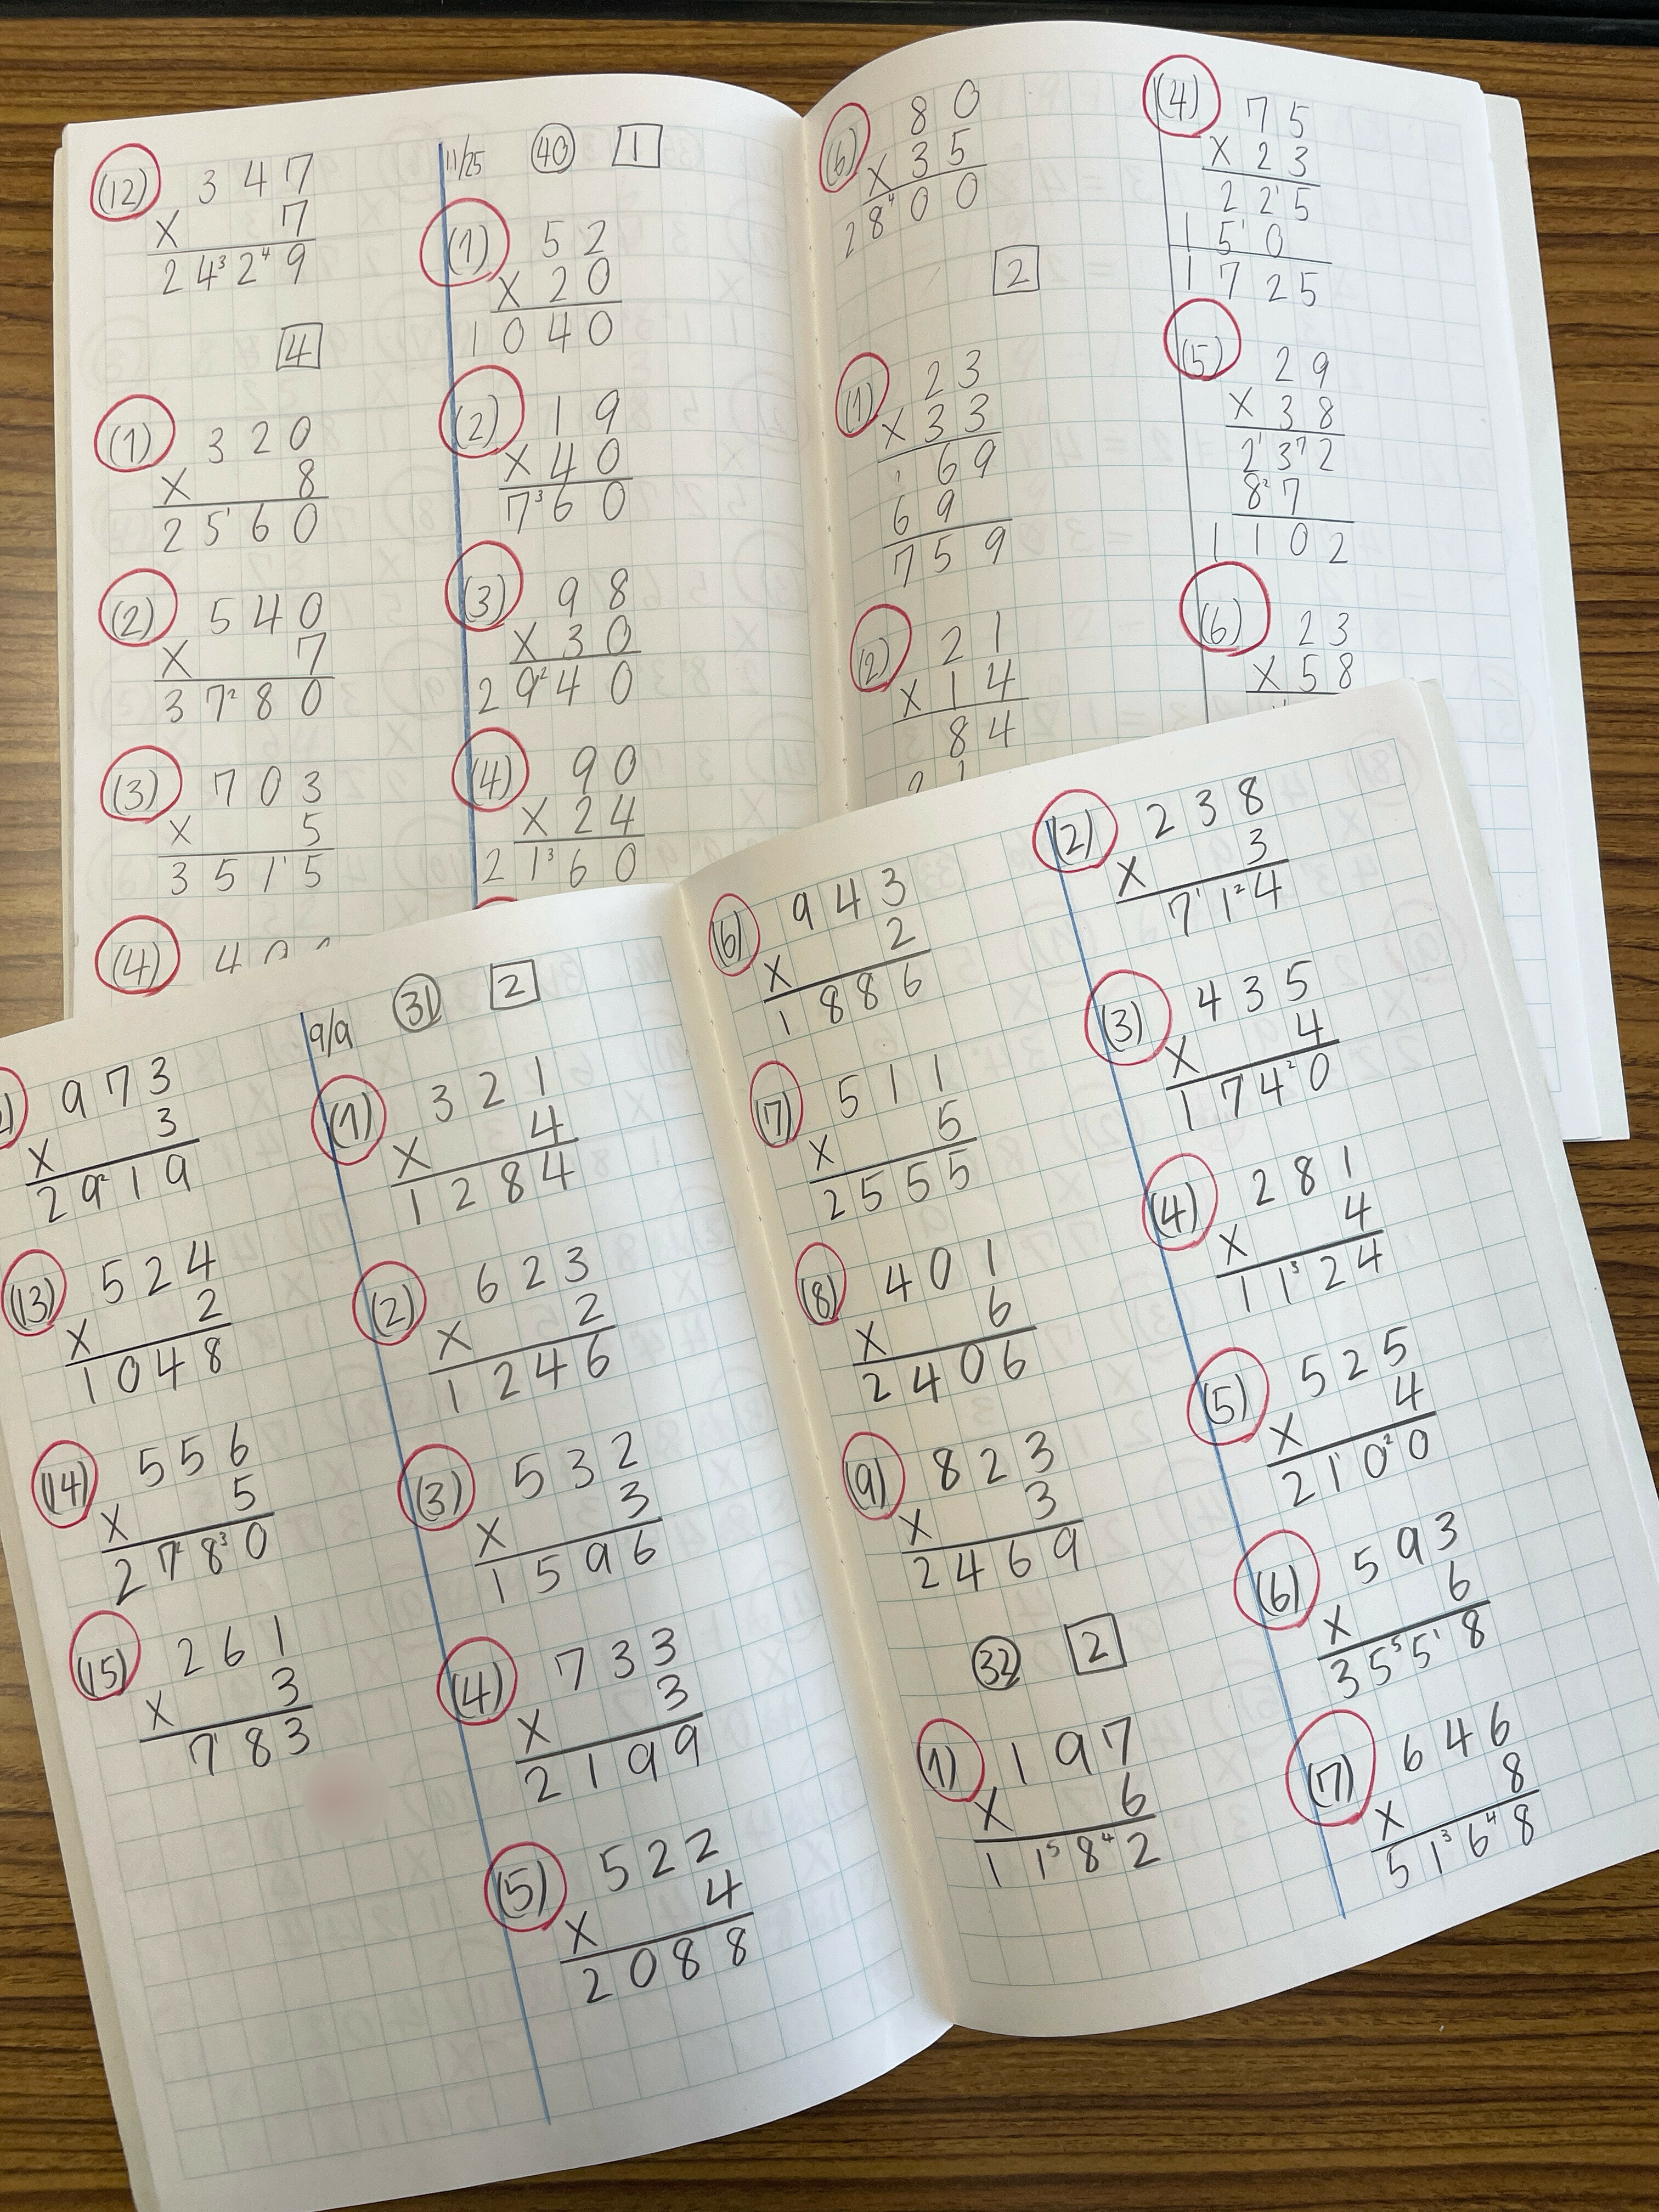 (12) 347
× 7
2429
4
(1) 320
× 8
2560
(2) 540
× 7
3780
(3) 703
× 5
3515
(4)
11/25 40 1
(1) 52
× 20
1040
(2) 19
× 40
760
(3) 98
× 30
2940
(4) 90
× 24
2160
(6) 80
× 35
2800
2
(1) 23
× 33
69
69
759
(2) 21
× 14
84
(4) 75
× 23
225
150
1725
(5) 29
× 38
232
87
1102
(6) 23
× 58
973
× 3
2919
(13) 524
× 2
1048
(14) 556
× 5
2780
(15) 261
× 3
783
9/9 31 2
(1) 321
× 4
1284
(2) 623
× 2
1246
(3) 532
× 3
1596
(4) 733
× 3
2199
(5) 522
× 4
2088
(6) 943
× 2
1886
(7) 511
× 5
2555
(8) 401
× 6
2406
(9) 823
× 3
2469
32 2
(1) 197
× 6
1182
(2) 238
× 3
714
(3) 435
× 4
1740
(4) 281
× 4
1124
(5) 525
× 4
2100
(6) 593
× 6
3558
(7) 646
× 8
5168